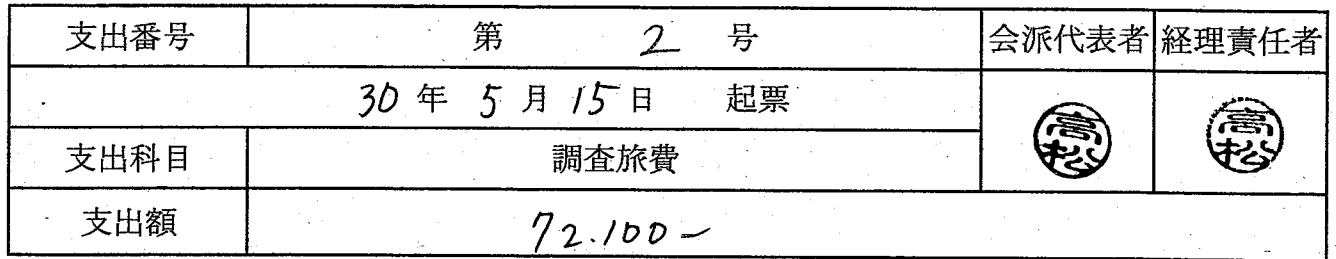 支出番号 第 2 号 会派代表者 経理責任者
30年 5月 15日 起票
高松 高松
支出科目 調査旅費
支出額 72.100-